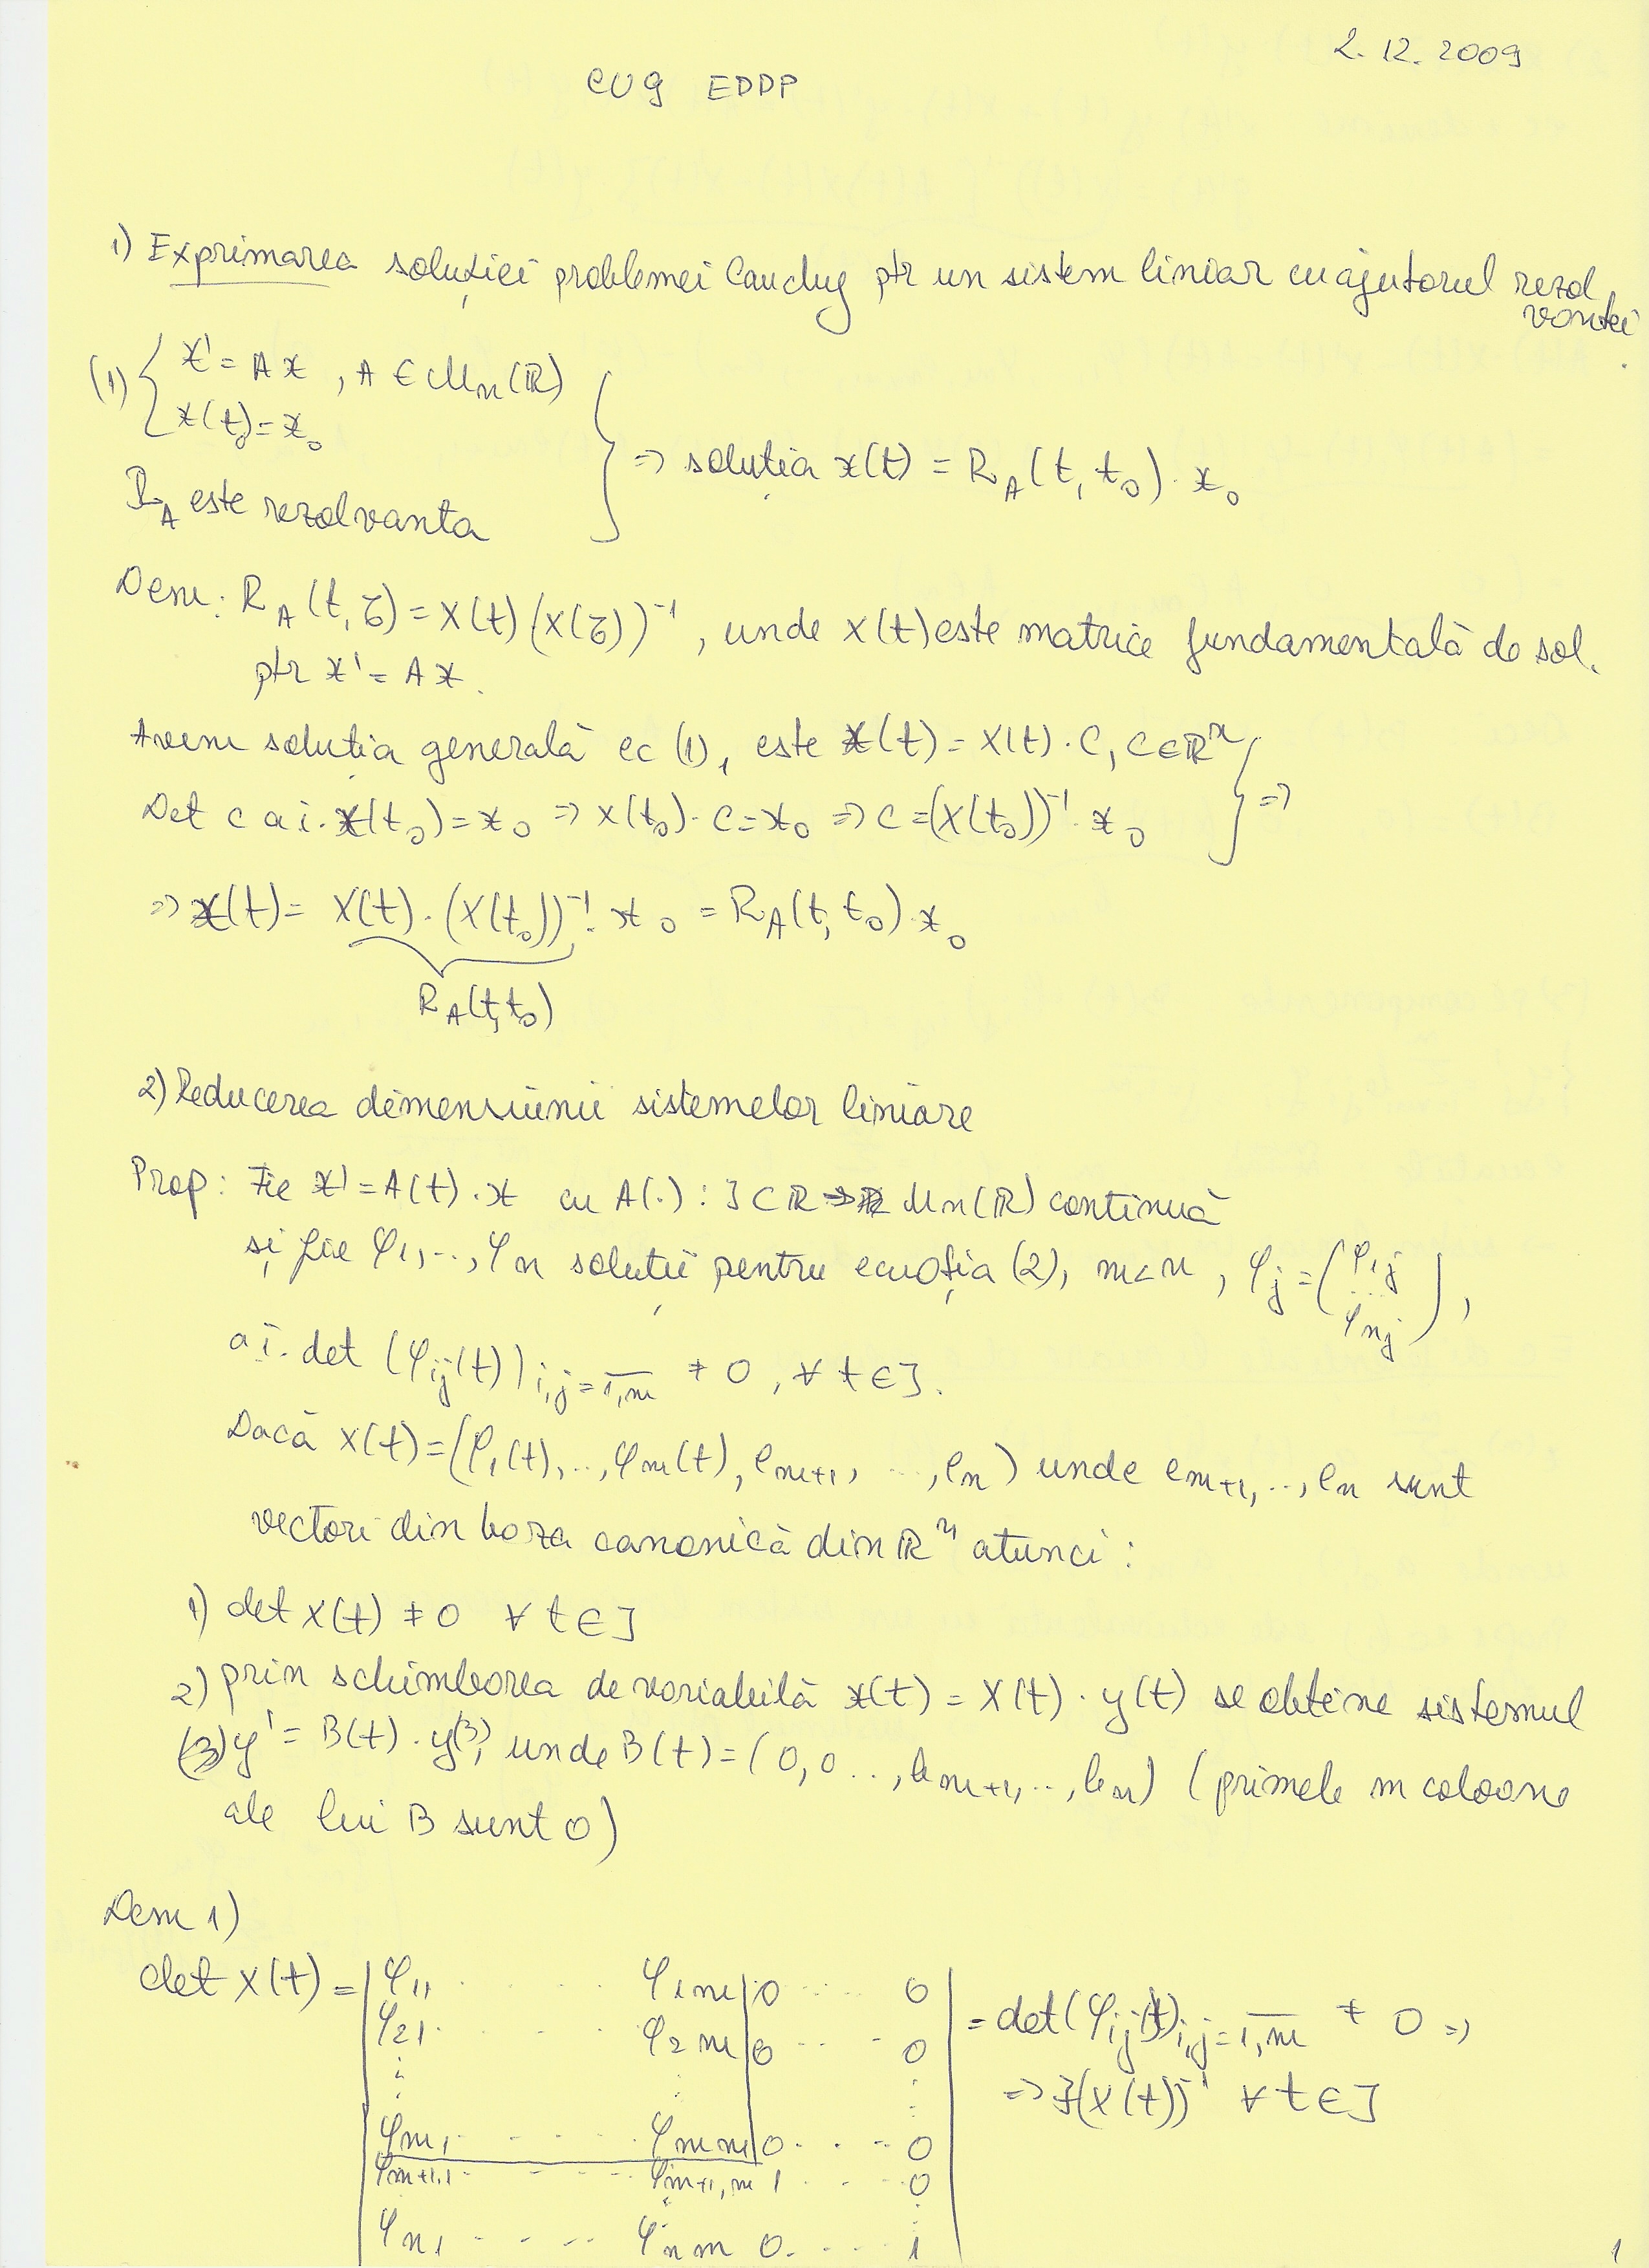 2.12.2009
CU9 EDDP
1) Exprimarea soluției problemei Cauchy ptr un sistem liniar cu ajutorul rezol
vantei
(1) { x' = Ax , A ∈ Mn(R)
x(t0) = x0
RA este rezolvanta } => soluția x(t) = RA(t, t0) · x0
Dem: RA(t, ζ) = X(t) (X(ζ))^-1 , unde X(t) este matrice fundamentală de sol.
ptr x' = Ax.
Avem soluția generală ec (1), este x(t) = X(t) · C, C∈R^n
Det c a i. x(t0) = x0 => X(t0) · C = x0 => C = (X(t0))^-1 · x0 } =>
=> x(t) = X(t) · (X(t0))^-1 · x0 = RA(t, t0) · x0
RA(t, t0)
2) Reducerea dimensiunii sistemelor liniare
Prop: Fie x' = A(t) · x cu A(·) : J ⊂ R → Mn(R) continuă
și fie φ1, .., φm soluții pentru ecuația (2), m<n , φj = (φ1j ... φnj) ,
a î. det (φij(t)) i,j=1,m ≠ 0 , ∀ t ∈ J.
Dacă X(t) = (φ1(t), .., φm(t), em+1, ..., en) unde em+1, .., en sunt
vectori din baza canonică din R^n atunci :
1) det X(t) ≠ 0 ∀ t ∈ J
2) prin schimbarea de variabilă x(t) = X(t) · y(t) se obține sistemul
(3) y' = B(t) · y(3), unde B(t) = (0, 0 .., bm+1, .., bn) (primele m coloane
ale lui B sunt 0)
Dem 1)
det X(t) = | φ11 .... φ1m | 0 .... 0 |
φ21 .... φ2m | 0 .... 0
φm1 .... φmm | 0 .... 0
φm+1,1 .... φm+1,m 1 .... 0
φn1 .... φnm 0 .... 1
= det(φij(t)) i,j=1,m ≠ 0 =>
=> ∃ (X(t))^-1 ∀ t ∈ J
1